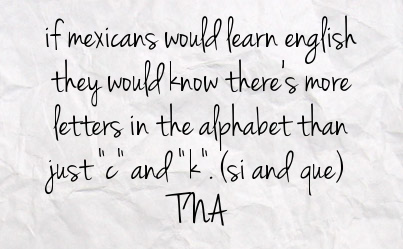 if mexicans would learn english
they would know there's more
letters in the alphabet than
just "c" and "k". (si and que)
TNA